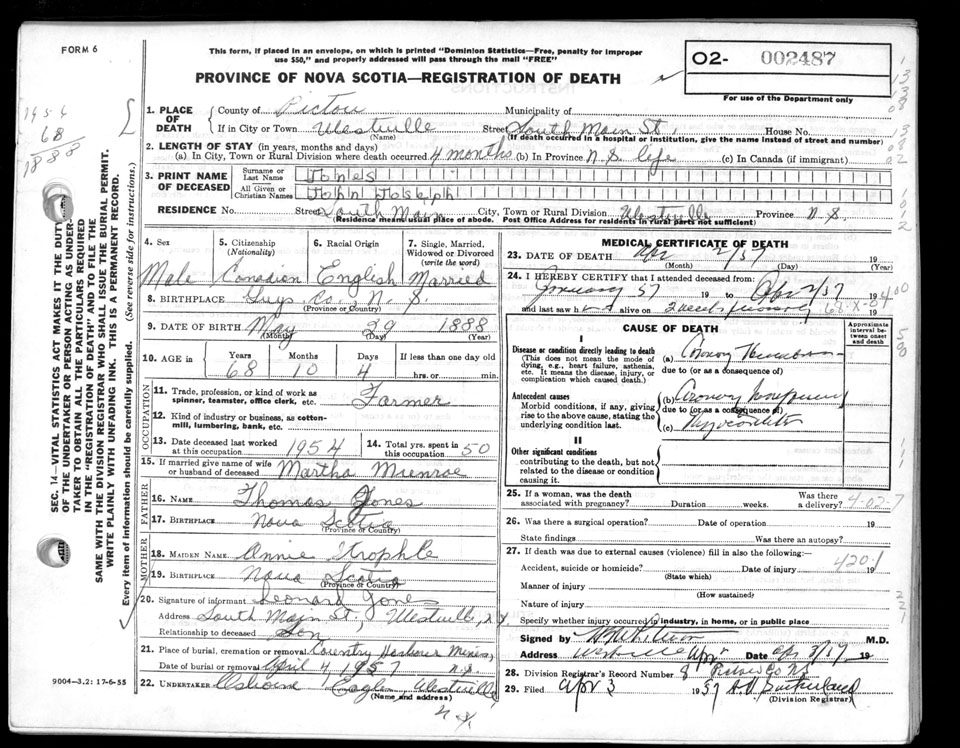 FORM 6
This form, if placed in an envelope, on which is printed "Dominion Statistics—Free, penalty for improper
use $50," and properly addressed will pass through the mail "FREE"
PROVINCE OF NOVA SCOTIA—REGISTRATION OF DEATH
02- 002487
For use of the Department only
1954
68
1888
SEC. 14—VITAL STATISTICS ACT MAKES IT THE DUTY
OF THE UNDERTAKER OR PERSON ACTING AS UNDER-
TAKER TO OBTAIN ALL THE PARTICULARS REQUIRED
IN THE "REGISTRATION OF DEATH" AND TO FILE THE
SAME WITH THE DIVISION REGISTRAR WHO SHALL ISSUE THE BURIAL PERMIT.
WRITE PLAINLY WITH UNFADING INK. THIS IS A PERMANENT RECORD.
Every item of information should be carefully supplied. (See reverse side for instructions.)
1. PLACE OF DEATH County of Pictou Municipality of
If in City or Town Westville (Name) Street South Main St., House No.
(If death occurred in a hospital or institution, give the name instead of street and number)
2. LENGTH OF STAY (in years, months and days)
(a) In City, Town or Rural Division where death occurred 4 months (b) In Province N.S. life (c) In Canada (if immigrant)
3. PRINT NAME OF DECEASED Surname or Last Name Jones
All Given or Christian Names John Joseph
RESIDENCE No. Street South Main City, Town or Rural Division Westville Province N.S.
(Residence means usual place of abode. Post Office Address for residents in rural parts not sufficient)
4. Sex 5. Citizenship (Nationality) 6. Racial Origin 7. Single, Married, Widowed or Divorced (write the word)
Male Canadian English Married
8. BIRTHPLACE Guys. Co. N.S.
(Province or Country)
9. DATE OF BIRTH May 29 1888
(Month) (Day) (Year)
10. AGE in Years Months Days If less than one day old
68 10 4 hrs. or min.
OCCUPATION
11. Trade, profession, or kind of work as spinner, teamster, office clerk, etc. Farmer
12. Kind of industry or business, as cotton-mill, lumbering, bank, etc.
13. Date deceased last worked at this occupation 1954 14. Total yrs. spent in this occupation 50
15. If married give name of wife or husband of deceased Martha Munroe
FATHER
16. NAME Thomas Jones
17. BIRTHPLACE Nova Scotia
(Province or Country)
MOTHER
18. MAIDEN NAME Annie
19. BIRTHPLACE Nova Scotia
(Province or Country)
20. Signature of informant Leonard Jones
Address South Main St., Westville, N.S.
Relationship to deceased Son
21. Place of burial, cremation or removal Country Harbour Mines,
Date of burial or removal April 4 1957 N.S.
22. UNDERTAKER Eagles Westville
(Name and address)
N.S.
9004-3.2: 17-6-55
MEDICAL CERTIFICATE OF DEATH
23. DATE OF DEATH Apr 2/57 19
(Month) (Day) (Year)
24. I HEREBY CERTIFY that I attended deceased from:
January 57 19 to Apr 2/57 19
and last saw h alive on 2 weeks 19
CAUSE OF DEATH
Approximate interval between onset and death
I
Disease or condition directly leading to death
(This does not mean the mode of dying, e.g., heart failure, asthenia, etc. It means the disease, injury, or complication which caused death.)
(a) Coronary Thrombosis
due to (or as a consequence of)
Antecedent causes
Morbid conditions, if any, giving rise to the above cause, stating the underlying condition last.
(b) Coronary
due to (or as a consequence of)
(c) Myocarditis
II
Other significant conditions
contributing to the death, but not related to the disease or condition causing it.
25. If a woman, was the death associated with pregnancy? Duration weeks. Was there a delivery? 4-02-7
26. Was there a surgical operation? Date of operation 19
State findings Was there an autopsy?
27. If death was due to external causes (violence) fill in also the following:—
Accident, suicide or homicide? Date of injury 420.1 19
(State which)
Manner of injury
(How sustained)
Nature of injury
Specify whether injury occurred in industry, in home, or in public place
Signed by M.D.
Address Westville Date Apr 3/57 19
28. Division Registrar's Record Number
29. Filed Apr 3 1957 Sutherland
(Division Registrar)